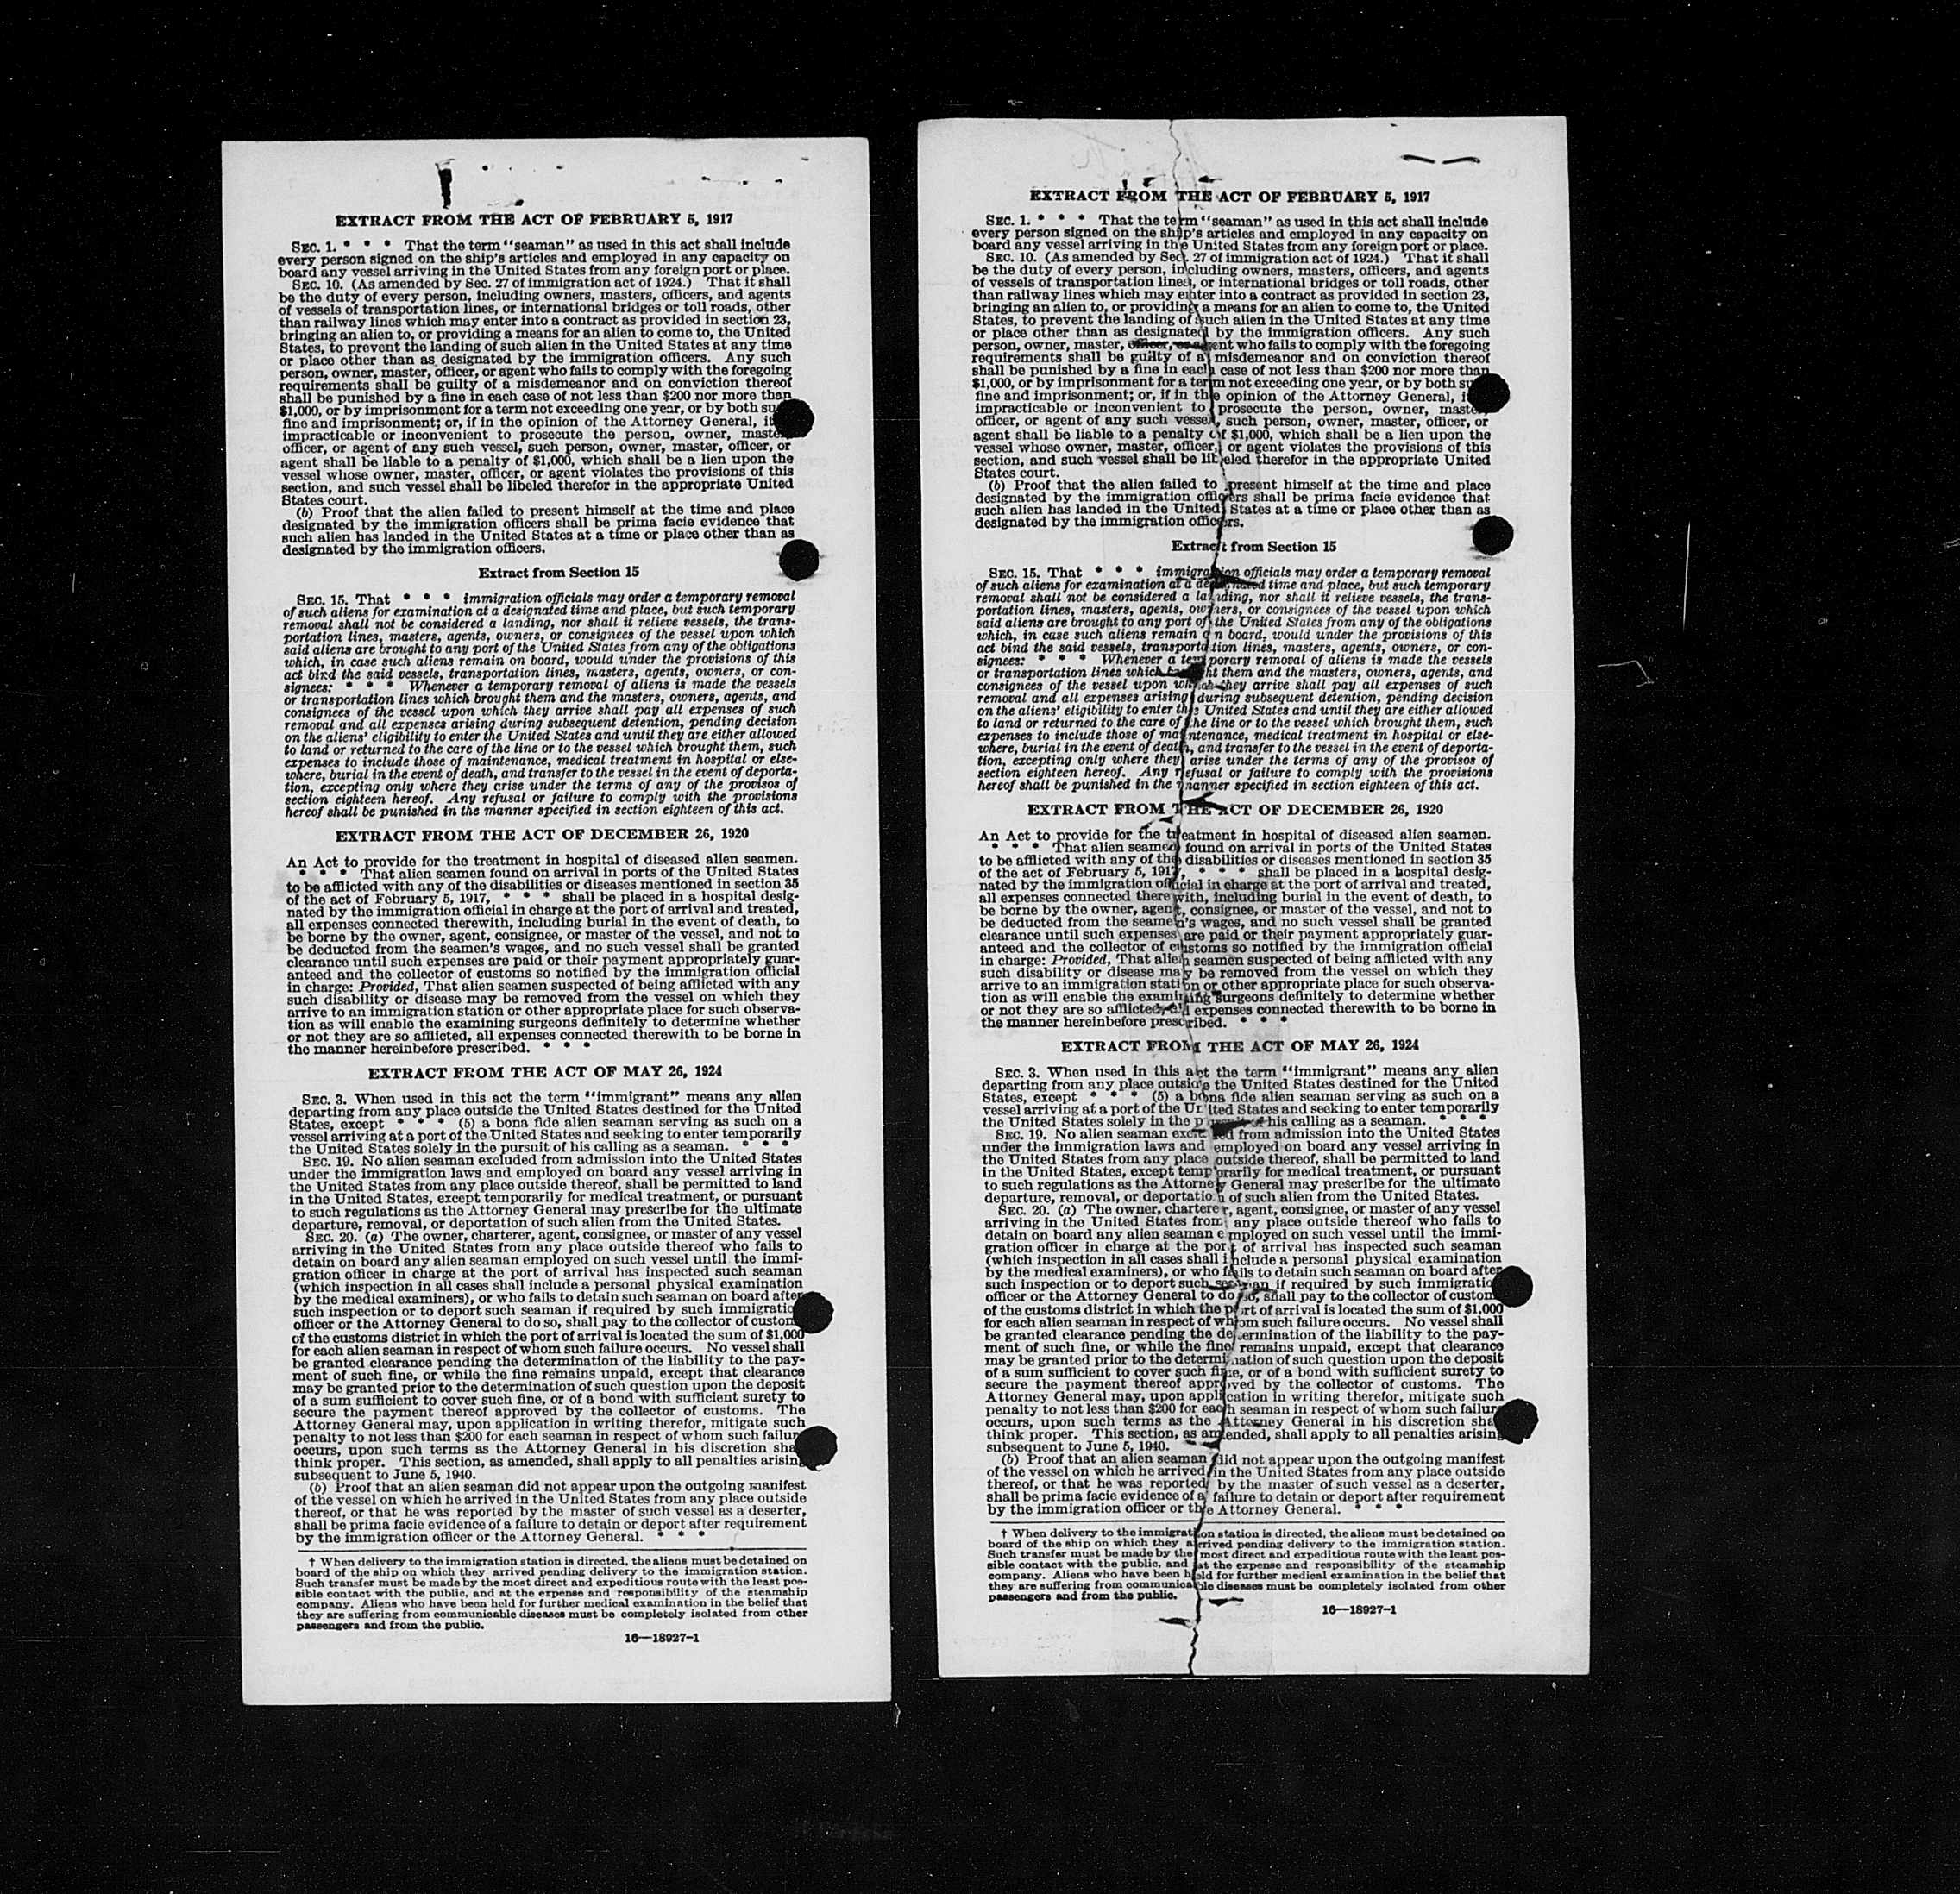 EXTRACT FROM THE ACT OF FEBRUARY 5, 1917
SEC. 1. * * * That the term "seaman" as used in this act shall include
every person signed on the ship's articles and employed in any capacity on
board any vessel arriving in the United States from any foreign port or place.
SEC. 10. (As amended by Sec. 27 of immigration act of 1924.) That it shall
be the duty of every person, including owners, masters, officers, and agents
of vessels of transportation lines, or international bridges or toll roads, other
than railway lines which may enter into a contract as provided in section 23,
bringing an alien to, or providing a means for an alien to come to, the United
States, to prevent the landing of such alien in the United States at any time
or place other than as designated by the immigration officers. Any such
person, owner, master, officer, or agent who fails to comply with the foregoing
requirements shall be guilty of a misdemeanor and on conviction thereof
shall be punished by a fine in each case of not less than $200 nor more than
$1,000, or by imprisonment for a term not exceeding one year, or by both su
fine and imprisonment; or, if in the opinion of the Attorney General, it
impracticable or inconvenient to prosecute the person, owner, maste
officer, or agent of any such vessel, such person, owner, master, officer, or
agent shall be liable to a penalty of $1,000, which shall be a lien upon the
vessel whose owner, master, officer, or agent violates the provisions of this
section, and such vessel shall be libeled therefor in the appropriate United
States court.
(b) Proof that the alien failed to present himself at the time and place
designated by the immigration officers shall be prima facie evidence that
such alien has landed in the United States at a time or place other than as
designated by the immigration officers.
Extract from Section 15
SEC. 15. That * * * immigration officials may order a temporary removal
of such aliens for examination at a designated time and place, but such temporary
removal shall not be considered a landing, nor shall it relieve vessels, the trans-
portation lines, masters, agents, owners, or consignees of the vessel upon which
said aliens are brought to any port of the United States from any of the obligations
which, in case such aliens remain on board, would under the provisions of this
act bind the said vessels, transportation lines, masters, agents, owners, or con-
signees: * * * Whenever a temporary removal of aliens is made the vessels
or transportation lines which brought them and the masters, owners, agents, and
consignees of the vessel upon which they arrive shall pay all expenses of such
removal and all expenses arising during subsequent detention, pending decision
on the aliens' eligibility to enter the United States and until they are either allowed
to land or returned to the care of the line or to the vessel which brought them, such
expenses to include those of maintenance, medical treatment in hospital or else-
where, burial in the event of death, and transfer to the vessel in the event of deporta-
tion, excepting only where they arise under the terms of any of the provisos of
section eighteen hereof. Any refusal or failure to comply with the provisions
hereof shall be punished in the manner specified in section eighteen of this act.
EXTRACT FROM THE ACT OF DECEMBER 26, 1920
An Act to provide for the treatment in hospital of diseased alien seamen.
* * * That alien seamen found on arrival in ports of the United States
to be afflicted with any of the disabilities or diseases mentioned in section 35
of the act of February 5, 1917, * * * shall be placed in a hospital desig-
nated by the immigration official in charge at the port of arrival and treated,
all expenses connected therewith, including burial in the event of death, to
be borne by the owner, agent, consignee, or master of the vessel, and not to
be deducted from the seamen's wages, and no such vessel shall be granted
clearance until such expenses are paid or their payment appropriately guar-
anteed and the collector of customs so notified by the immigration official
in charge: Provided, That alien seamen suspected of being afflicted with any
such disability or disease may be removed from the vessel on which they
arrive to an immigration station or other appropriate place for such observa-
tion as will enable the examining surgeons definitely to determine whether
or not they are so afflicted, all expenses connected therewith to be borne in
the manner hereinbefore prescribed. * * *
EXTRACT FROM THE ACT OF MAY 26, 1924
SEC. 3. When used in this act the term "immigrant" means any alien
departing from any place outside the United States destined for the United
States, except * * * (5) a bona fide alien seaman serving as such on a
vessel arriving at a port of the United States and seeking to enter temporarily
the United States solely in the pursuit of his calling as a seaman. * * *
SEC. 19. No alien seaman excluded from admission into the United States
under the immigration laws and employed on board any vessel arriving in
the United States from any place outside thereof, shall be permitted to land
in the United States, except temporarily for medical treatment, or pursuant
to such regulations as the Attorney General may prescribe for the ultimate
departure, removal, or deportation of such alien from the United States.
SEC. 20. (a) The owner, charterer, agent, consignee, or master of any vessel
arriving in the United States from any place outside thereof who fails to
detain on board any alien seaman employed on such vessel until the immi-
gration officer in charge at the port of arrival has inspected such seaman
(which inspection in all cases shall include a personal physical examination
by the medical examiners), or who fails to detain such seaman on board after
such inspection or to deport such seaman if required by such immigratio
officer or the Attorney General to do so, shall pay to the collector of custom
of the customs district in which the port of arrival is located the sum of $1,000
for each alien seaman in respect of whom such failure occurs. No vessel shall
be granted clearance pending the determination of the liability to the pay-
ment of such fine, or while the fine remains unpaid, except that clearance
may be granted prior to the determination of such question upon the deposit
of a sum sufficient to cover such fine, or of a bond with sufficient surety to
secure the payment thereof approved by the collector of customs. The
Attorney General may, upon application in writing therefor, mitigate such
penalty to not less than $200 for each seaman in respect of whom such failur
occurs, upon such terms as the Attorney General in his discretion sha
think proper. This section, as amended, shall apply to all penalties arising
subsequent to June 5, 1940.
(b) Proof that an alien seaman did not appear upon the outgoing manifest
of the vessel on which he arrived in the United States from any place outside
thereof, or that he was reported by the master of such vessel as a deserter,
shall be prima facie evidence of a failure to detain or deport after requirement
by the immigration officer or the Attorney General. * * *
† When delivery to the immigration station is directed, the aliens must be detained on
board of the ship on which they arrived pending delivery to the immigration station.
Such transfer must be made by the most direct and expeditious route with the least pos-
sible contact with the public, and at the expense and responsibility of the steamship
company. Aliens who have been held for further medical examination in the belief that
they are suffering from communicable diseases must be completely isolated from other
passengers and from the public.
16—18927-1
EXTRACT FROM THE ACT OF FEBRUARY 5, 1917
SEC. 1. * * * That the term "seaman" as used in this act shall include
every person signed on the ship's articles and employed in any capacity on
board any vessel arriving in the United States from any foreign port or place.
SEC. 10. (As amended by Sec. 27 of immigration act of 1924.) That it shall
be the duty of every person, including owners, masters, officers, and agents
of vessels of transportation lines, or international bridges or toll roads, other
than railway lines which may enter into a contract as provided in section 23,
bringing an alien to, or providing a means for an alien to come to, the United
States, to prevent the landing of such alien in the United States at any time
or place other than as designated by the immigration officers. Any such
person, owner, master, officer, or agent who fails to comply with the foregoing
requirements shall be guilty of a misdemeanor and on conviction thereof
shall be punished by a fine in each case of not less than $200 nor more than
$1,000, or by imprisonment for a term not exceeding one year, or by both su
fine and imprisonment; or, if in the opinion of the Attorney General, it
impracticable or inconvenient to prosecute the person, owner, maste
officer, or agent of any such vessel, such person, owner, master, officer, or
agent shall be liable to a penalty of $1,000, which shall be a lien upon the
vessel whose owner, master, officer, or agent violates the provisions of this
section, and such vessel shall be libeled therefor in the appropriate United
States court.
(b) Proof that the alien failed to present himself at the time and place
designated by the immigration officers shall be prima facie evidence that
such alien has landed in the United States at a time or place other than as
designated by the immigration officers.
Extract from Section 15
SEC. 15. That * * * immigration officials may order a temporary removal
of such aliens for examination at a designated time and place, but such temporary
removal shall not be considered a landing, nor shall it relieve vessels, the trans-
portation lines, masters, agents, owners, or consignees of the vessel upon which
said aliens are brought to any port of the United States from any of the obligations
which, in case such aliens remain on board, would under the provisions of this
act bind the said vessels, transportation lines, masters, agents, owners, or con-
signees: * * * Whenever a temporary removal of aliens is made the vessels
or transportation lines which brought them and the masters, owners, agents, and
consignees of the vessel upon which they arrive shall pay all expenses of such
removal and all expenses arising during subsequent detention, pending decision
on the aliens' eligibility to enter the United States and until they are either allowed
to land or returned to the care of the line or to the vessel which brought them, such
expenses to include those of maintenance, medical treatment in hospital or else-
where, burial in the event of death, and transfer to the vessel in the event of deporta-
tion, excepting only where they arise under the terms of any of the provisos of
section eighteen hereof. Any refusal or failure to comply with the provisions
hereof shall be punished in the manner specified in section eighteen of this act.
EXTRACT FROM THE ACT OF DECEMBER 26, 1920
An Act to provide for the treatment in hospital of diseased alien seamen.
* * * That alien seamen found on arrival in ports of the United States
to be afflicted with any of the disabilities or diseases mentioned in section 35
of the act of February 5, 1917, * * * shall be placed in a hospital desig-
nated by the immigration official in charge at the port of arrival and treated,
all expenses connected therewith, including burial in the event of death, to
be borne by the owner, agent, consignee, or master of the vessel, and not to
be deducted from the seamen's wages, and no such vessel shall be granted
clearance until such expenses are paid or their payment appropriately guar-
anteed and the collector of customs so notified by the immigration official
in charge: Provided, That alien seamen suspected of being afflicted with any
such disability or disease may be removed from the vessel on which they
arrive to an immigration station or other appropriate place for such observa-
tion as will enable the examining surgeons definitely to determine whether
or not they are so afflicted, all expenses connected therewith to be borne in
the manner hereinbefore prescribed. * * *
EXTRACT FROM THE ACT OF MAY 26, 1924
SEC. 3. When used in this act the term "immigrant" means any alien
departing from any place outside the United States destined for the United
States, except * * * (5) a bona fide alien seaman serving as such on a
vessel arriving at a port of the United States and seeking to enter temporarily
the United States solely in the of his calling as a seaman. * * *
SEC. 19. No alien seaman excluded from admission into the United States
under the immigration laws and employed on board any vessel arriving in
the United States from any place outside thereof, shall be permitted to land
in the United States, except temporarily for medical treatment, or pursuant
to such regulations as the Attorney General may prescribe for the ultimate
departure, removal, or deportation of such alien from the United States.
SEC. 20. (a) The owner, charterer, agent, consignee, or master of any vessel
arriving in the United States from any place outside thereof who fails to
detain on board any alien seaman employed on such vessel until the immi-
gration officer in charge at the port of arrival has inspected such seaman
(which inspection in all cases shall include a personal physical examination
by the medical examiners), or who fails to detain such seaman on board after
such inspection or to deport such seaman if required by such immigratio
officer or the Attorney General to do so, shall pay to the collector of custom
of the customs district in which the port of arrival is located the sum of $1,000
for each alien seaman in respect of whom such failure occurs. No vessel shall
be granted clearance pending the determination of the liability to the pay-
ment of such fine, or while the fine remains unpaid, except that clearance
may be granted prior to the determination of such question upon the deposit
of a sum sufficient to cover such fine, or of a bond with sufficient surety to
secure the payment thereof approved by the collector of customs. The
Attorney General may, upon application in writing therefor, mitigate such
penalty to not less than $200 for each seaman in respect of whom such failure
occurs, upon such terms as the Attorney General in his discretion sha
think proper. This section, as amended, shall apply to all penalties arising
subsequent to June 5, 1940.
(b) Proof that an alien seaman did not appear upon the outgoing manifest
of the vessel on which he arrived in the United States from any place outside
thereof, or that he was reported by the master of such vessel as a deserter,
shall be prima facie evidence of a failure to detain or deport after requirement
by the immigration officer or the Attorney General. * * *
† When delivery to the immigration station is directed, the aliens must be detained on
board of the ship on which they arrived pending delivery to the immigration station.
Such transfer must be made by the most direct and expeditious route with the least pos-
sible contact with the public, and at the expense and responsibility of the steamship
company. Aliens who have been held for further medical examination in the belief that
they are suffering from communicable diseases must be completely isolated from other
passengers and from the public.
16—18927-1